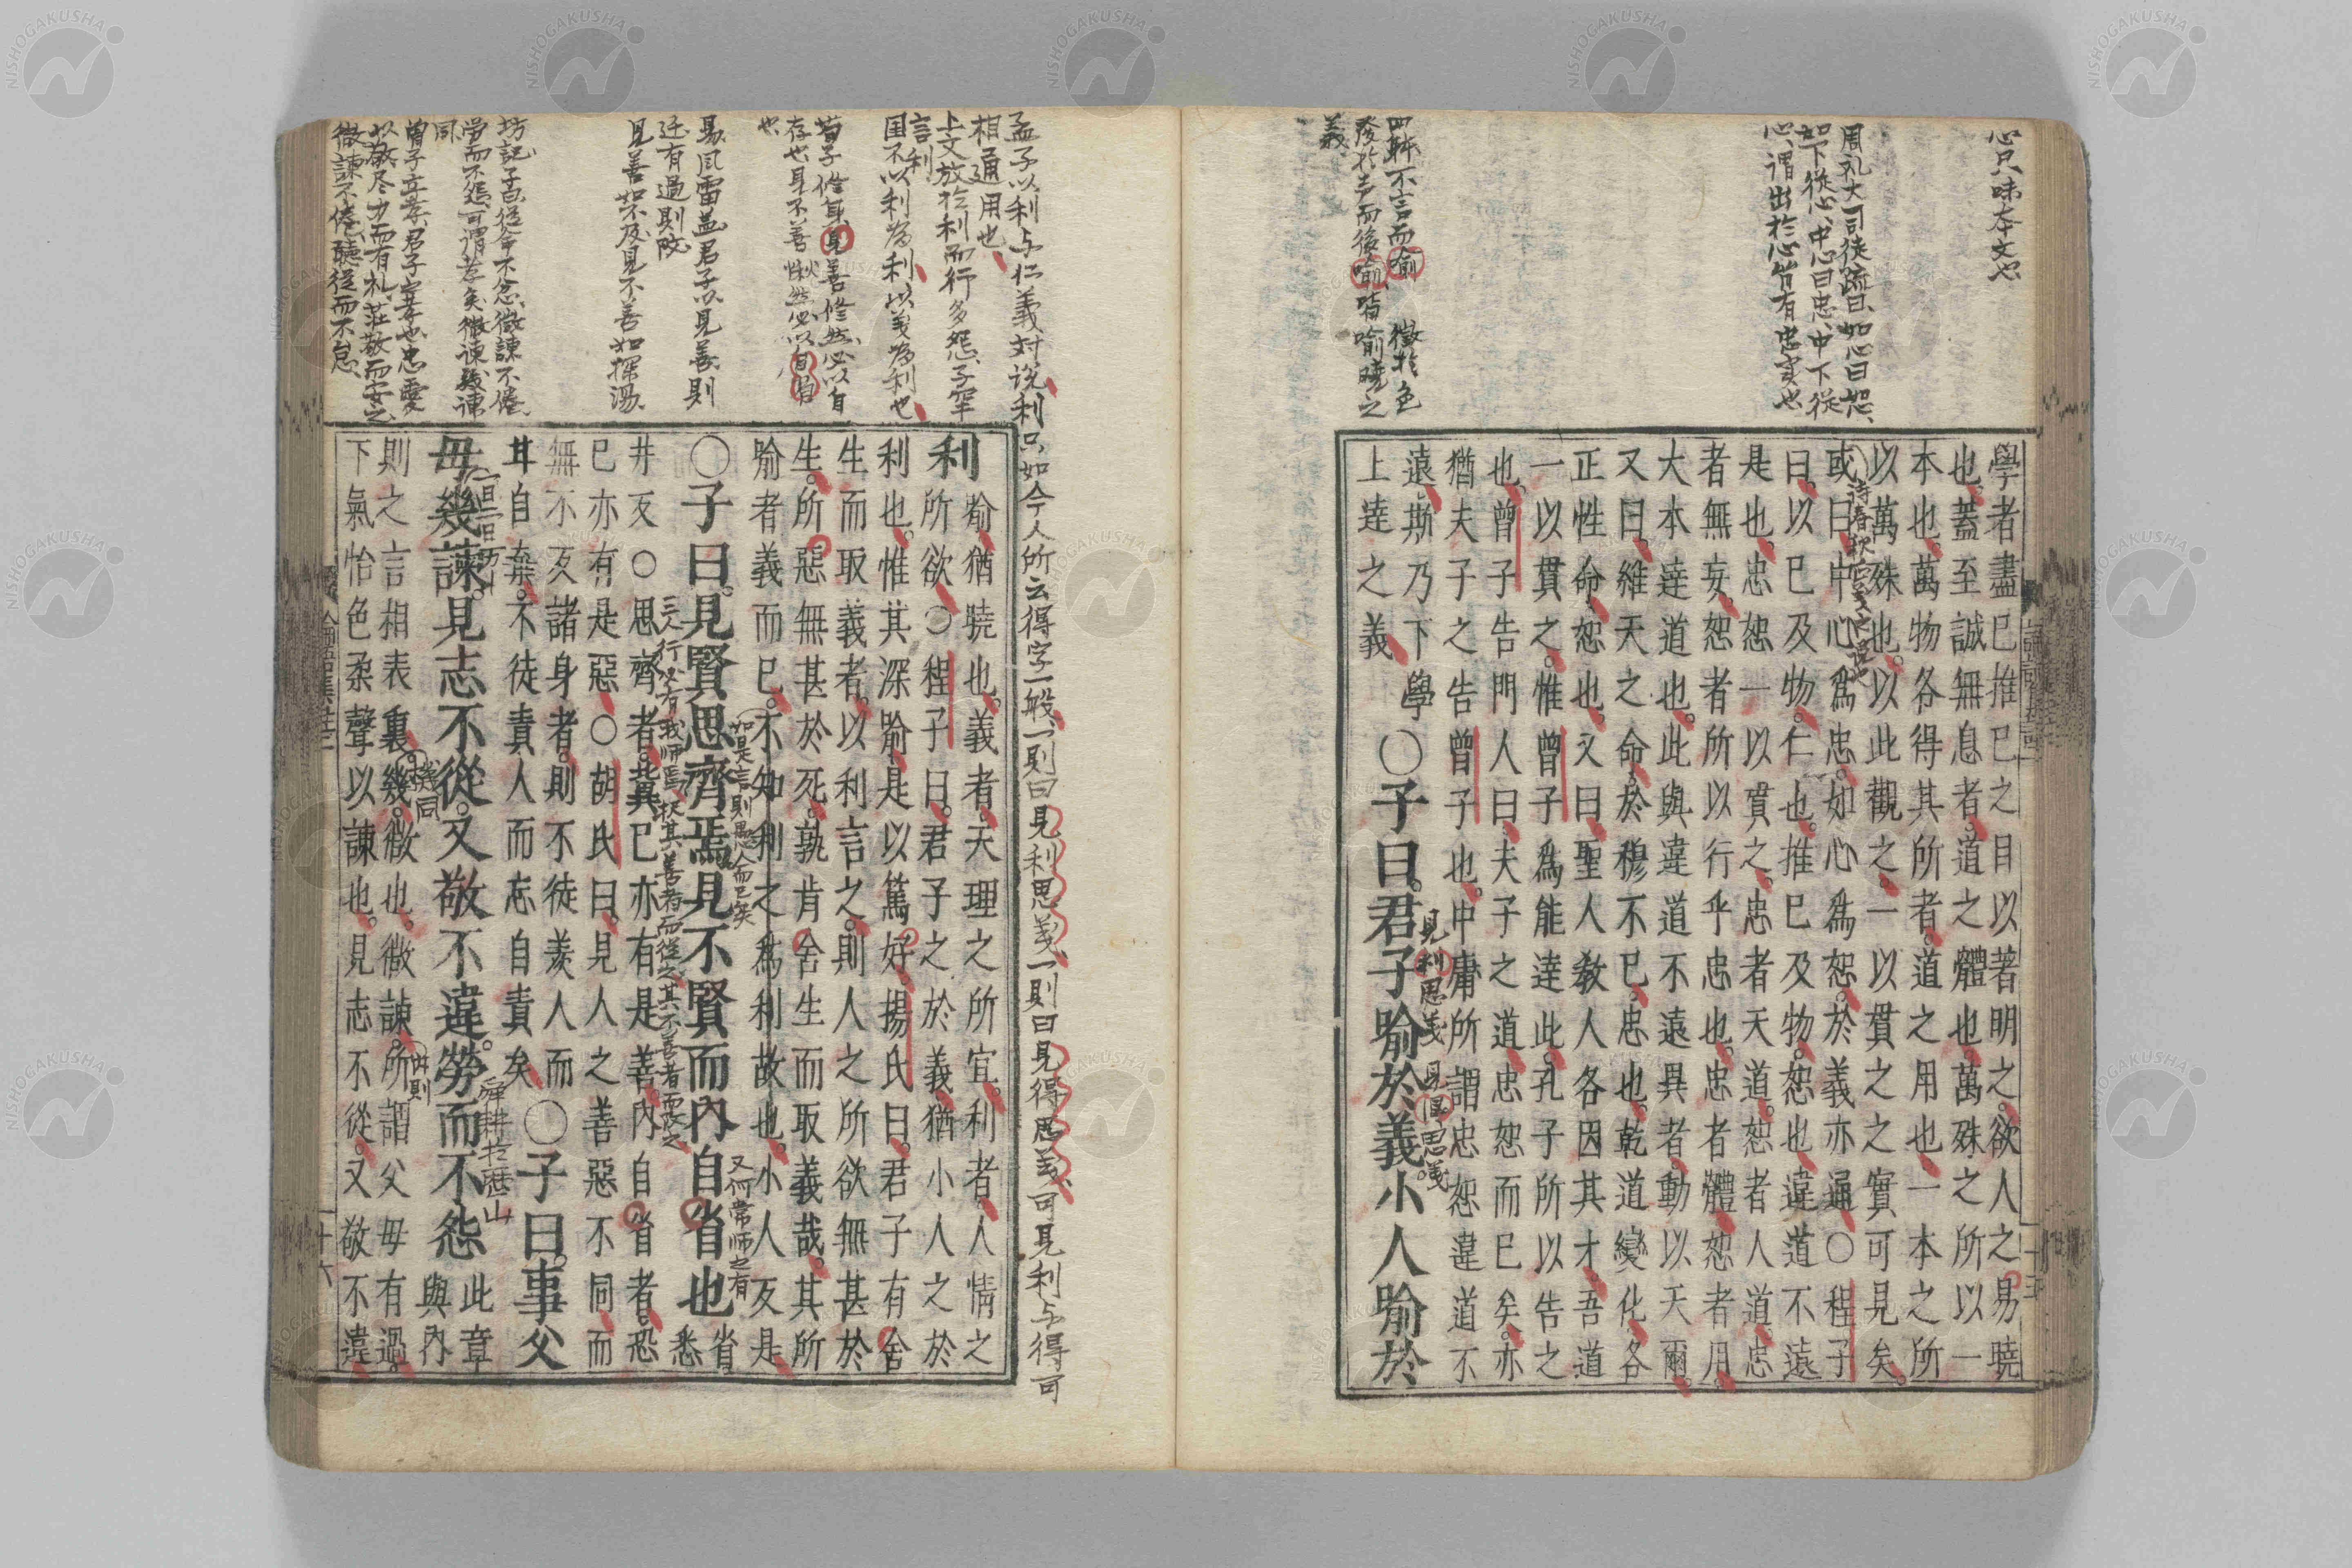 心只味本文也
周礼大司徒疏曰如心曰恕
如下從心中心曰忠中下從
心謂出於心皆有忠実也
四躰不言而喻 徵於色
發於声而後喻皆喻曉之
義
學者盡己推己之目以著明之欲人之易曉
也蓋至誠無息者道之體也萬殊之所以一
本也萬物各得其所者道之用也一本之所
以萬殊也以此觀之一以貫之之實可見矣
或曰中心爲忠如心爲恕於義亦通○程子
曰以己及物仁也推己及物恕也違道不遠
是也忠恕一以貫之忠者天道恕者人道忠
者無妄恕者所以行乎忠也忠者體恕者用
大本達道也此與違道不遠異者動以天爾
又曰維天之命於穆不已忠也乾道變化各
正性命恕也又曰聖人教人各因其才吾道
一以貫之惟曾子爲能達此孔子所以告之
也曾子告門人曰夫子之道忠恕而已矣亦
猶夫子之告曾子也中庸所謂忠恕違道不
遠斯乃下學
上達之義
○子曰君子喻於義小人喻於
見利思義 見得思義
孟子以利与仁義対説利只如今人所云得字一般一則曰見利思義一則曰見得思義可見利与得可
相通用也
上文放於利而行多怨子罕
言利
国不以利為利以義為利也
荀子修身見善修然必以自
存也見不善愀然必以自省
也
易風雷益君子以見善則
迁有過則改
見善如不及見不善如探湯
坊記子曰從命不忿微諫不倦
労而不怨可謂孝矣
同
曽子立孝君子之孝也忠愛
以敬尽力而有礼荘敬而安之
微諫不倦聴從而不怠
利
喻猶曉也義者天理之所宜利者人情之
所欲○程子曰君子之於義猶小人之於
利也惟其深喻是以篤好揚氏曰君子有舍
生而取義者以利言之則人之所欲無甚於
生所惡無甚於死孰肯舍生而取義哉其所
喻者義而已不知利之爲利故也小人反是
○子曰見賢思齊焉見不賢而內自省也
省
悉
如是言則愚人而已矣
又何常師之有
三人行必有我師焉択其善者而從之其不善者而改之
井反○思齊者冀己亦有是善內自省者恐
己亦有是惡○胡氏曰見人之善惡不同而
無不反諸身者則不徒羨人而
甘自棄不徒責人而忘自責矣
○子曰事父
母幾諫見志不從又敬不違勞而不怨
舜耕於歴山
此章
與內
則之言相表裏幾微也微諫所謂父母有過
下氣怡色柔聲以諫也見志不從又敬不違
十六